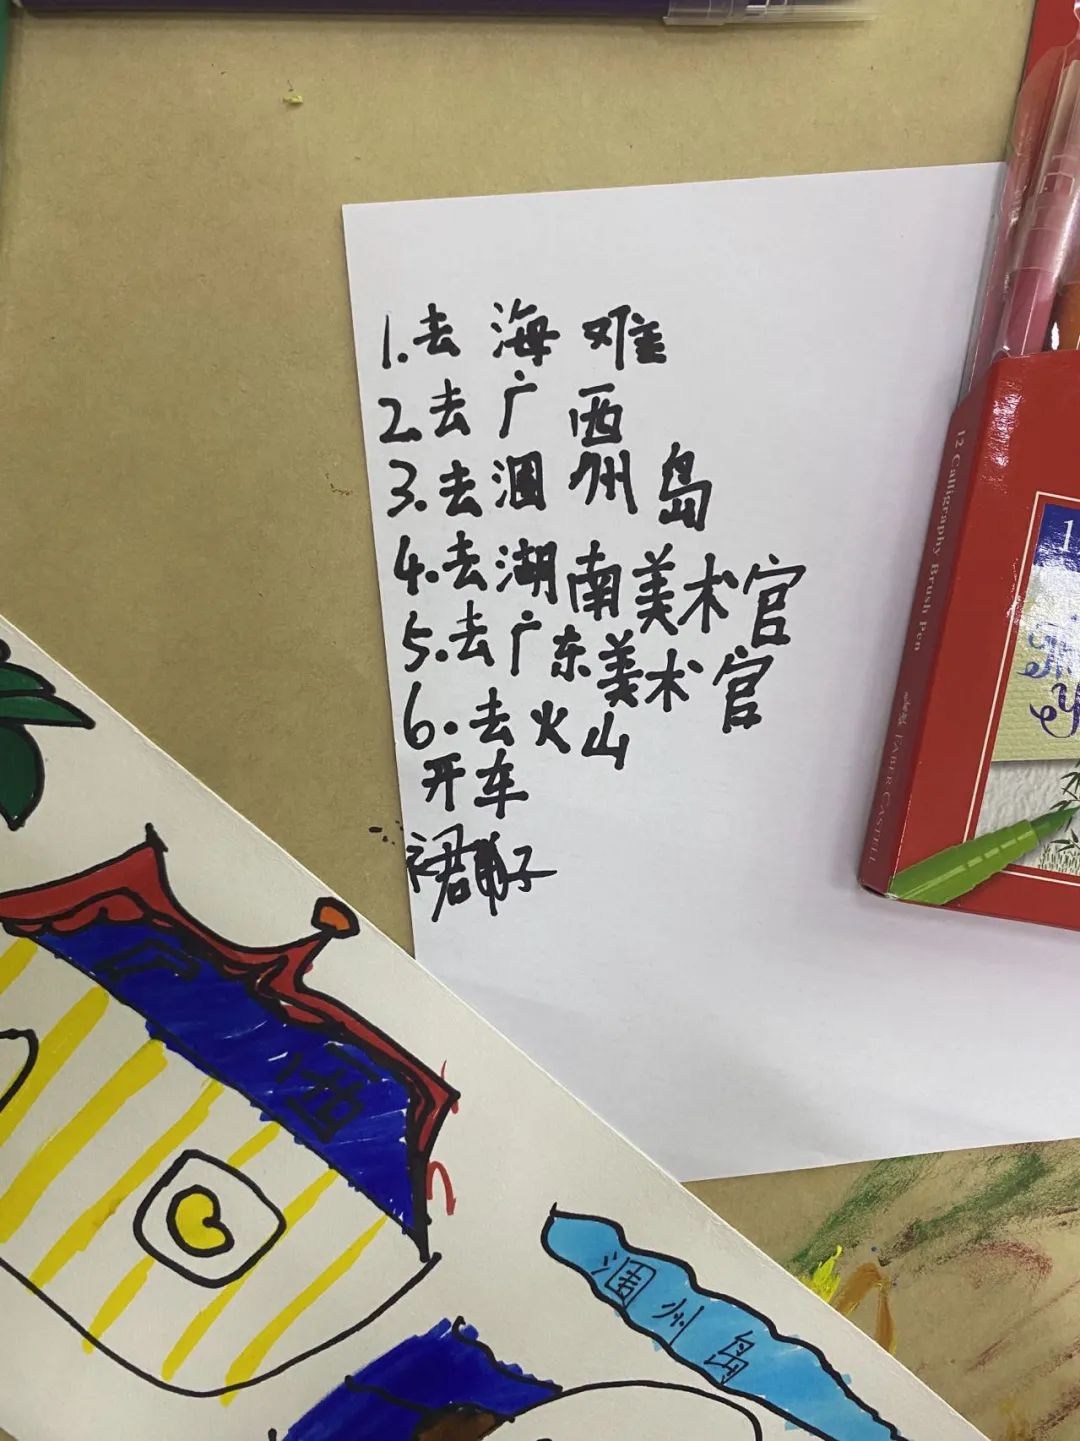 1.去海难
2.去广西
3.去涠州岛
4.去湖南美术官
5.去广东美术官
6.去火山
开车
12 Calligraphy Brush Pen
FABER-CASTELL
广西
涠州岛